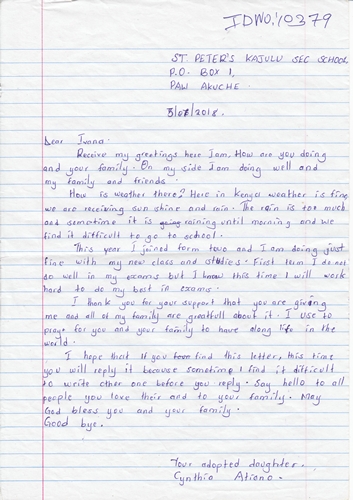 IDNO:10379
ST PETER'S KAJULU SEC SCHOOL
P.O. BOX 1,
PAW AKUCHE
3/07/2018.
Dear Ivana.
Receive my greetings here I am. How are you doing
and your family. On my side I am doing well and
my family and friends.
How is weather there? Here in Kenya weather is fine
we are receiving sun shine and rain. The rain is too much
and sometime it is raining until morning and we
find it difficult to go to school.
This year I joined form two and I am doing just
fine with my new class and studies. First term I do not
do well in my exams but I know this time I will work
hard to do my best in exams.
I thank you for your support that you are giving
me and all of my family are greatfull about it. I use to
pray for you and your family to have along life in the
world.
I hope that If you find this letter, this time
you will reply it because sometime I find it difficult
to write other one before you reply. Say hello to all
people you love their and to your family. May
God bless you and your family.
Good bye.
Your adopted doughter.
Cynthia Atieno.